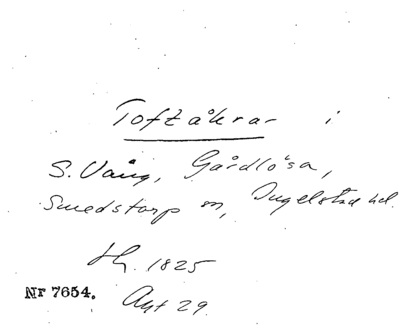 Toftåkrar i
S. Vång, Gårdlösa,
Smedstorp sn, Ingelstad hd.
Hg. 1825
Nr 7654. Akt 29.